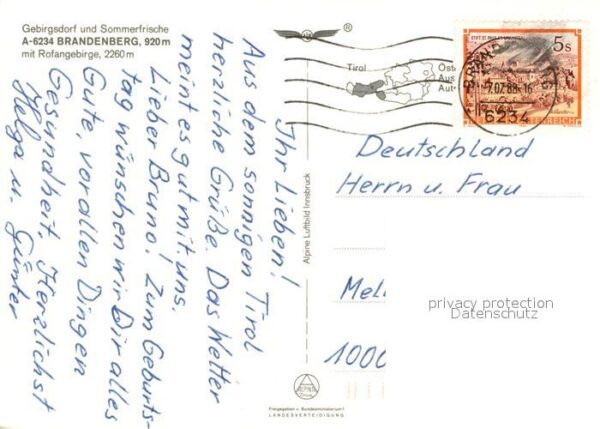 Gebirgsdorf und Sommerfrische
A-6234 BRANDENBERG, 920 m
mit Rofangebirge, 2260 m
Ihr Lieben!
Aus dem sonnigen Tirol
herzliche Grüße. Das Wetter
meint es gut mit uns.
Lieber Bruno! Zum Geburts-
tag wünschen wir Dir alles
Gute, vor allen Dingen
Gesundheit. Herzlichst
Helga u. Günter
Alpine Luftbild Innsbruck
ALPINE
Freigegeben v. Bundesministerium f.
LANDESVERTEIDIGUNG
®
Tirol
Öst
Aus
Aut
STIFT ST. PAUL IM LAVANTTAL
5 s
7.07.88-16
6234
Deutschland
Herrn u. Frau
Mel
1000
privacy protection
Datenschutz